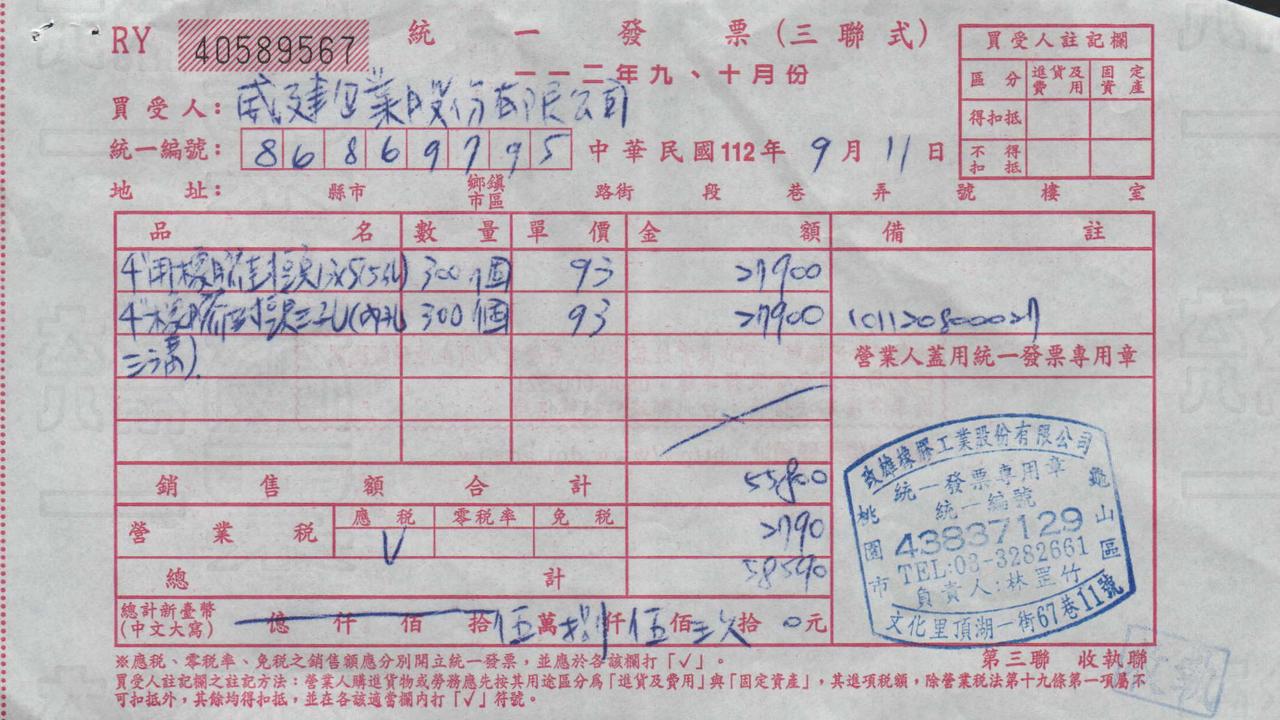 RY 40589567 統一發票(三聯式)
一一二年九、十月份
買受人註記欄
區分 進貨及費用 固定資產
得扣抵
不得扣抵
買受人: 威建企業股份有限公司
統一編號: 86869795 中華民國112年 9月 11日
地址: 縣市 鄉鎮市區 路街 段 巷 弄 號 樓 室
品名 數量 單價 金額 備註
300個 93 27900
300個 93 27900 101120800027
營業人蓋用統一發票專用章
銷售額合計 55800
應稅 零稅率 免稅
營業稅 V 2790
總計 58590
總計新臺幣(中文大寫) 億 仟 佰 拾 伍萬 捌仟 伍佰 玖拾 0元
政雄橡膠工業股份有限公司
統一發票專用章
統一編號
43837129
TEL:03-3282661
負責人:林罡竹
桃園市龜山區
文化里頂湖一街67巷11號
第三聯 收執聯
※應稅、零稅率、免稅之銷售額應分別開立統一發票,並應於各該欄打「✓」。
買受人註記欄之註記方法:營業人購進貨物或勞務應先按其用途區分為「進貨及費用」與「固定資產」,其進項稅額,除營業稅法第十九條第一項屬不
可扣抵外,其餘均得扣抵,並在各該適當欄內打「✓」符號。